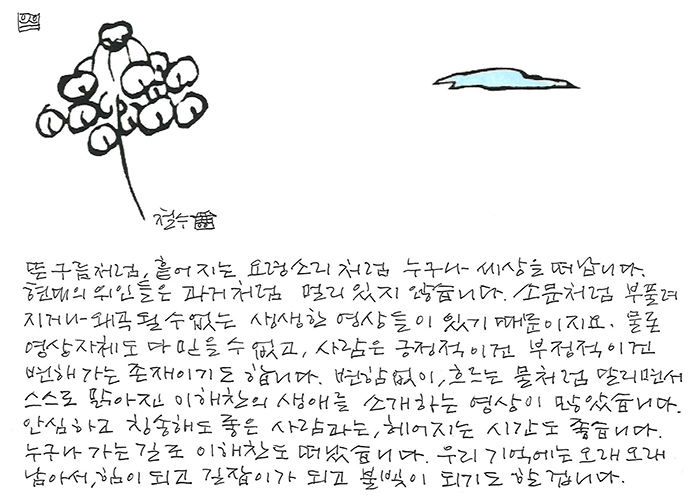 철수
뜬구름처럼, 흩어지는 요령소리처럼 누구나 세상을 떠납니다.
현대의 위인들은 과거처럼 멀리있지 않습니다. 소문처럼 부풀려
지거나 왜곡될수없는 생생한 영상들이 있기 때문이지요. 물론
영상자체도 다 믿을 수 없고, 사람은 긍정적이건 부정적이건
변해가는 존재이기도 합니다. 변함없이, 흐르는 물처럼 말리면서
스스로 맑아진 이해찬의 생애를 소개하는 영상이 많았습니다.
안심하고 칭송해도 좋은 사람과는, 헤어지는 시간도 좋습니다.
누구나 가는길로 이해찬도 떠났습니다. 우리 기억에는 오래오래
남아서, 힘이 되고 길잡이가 되고 불빛이 되기도 할겁니다.